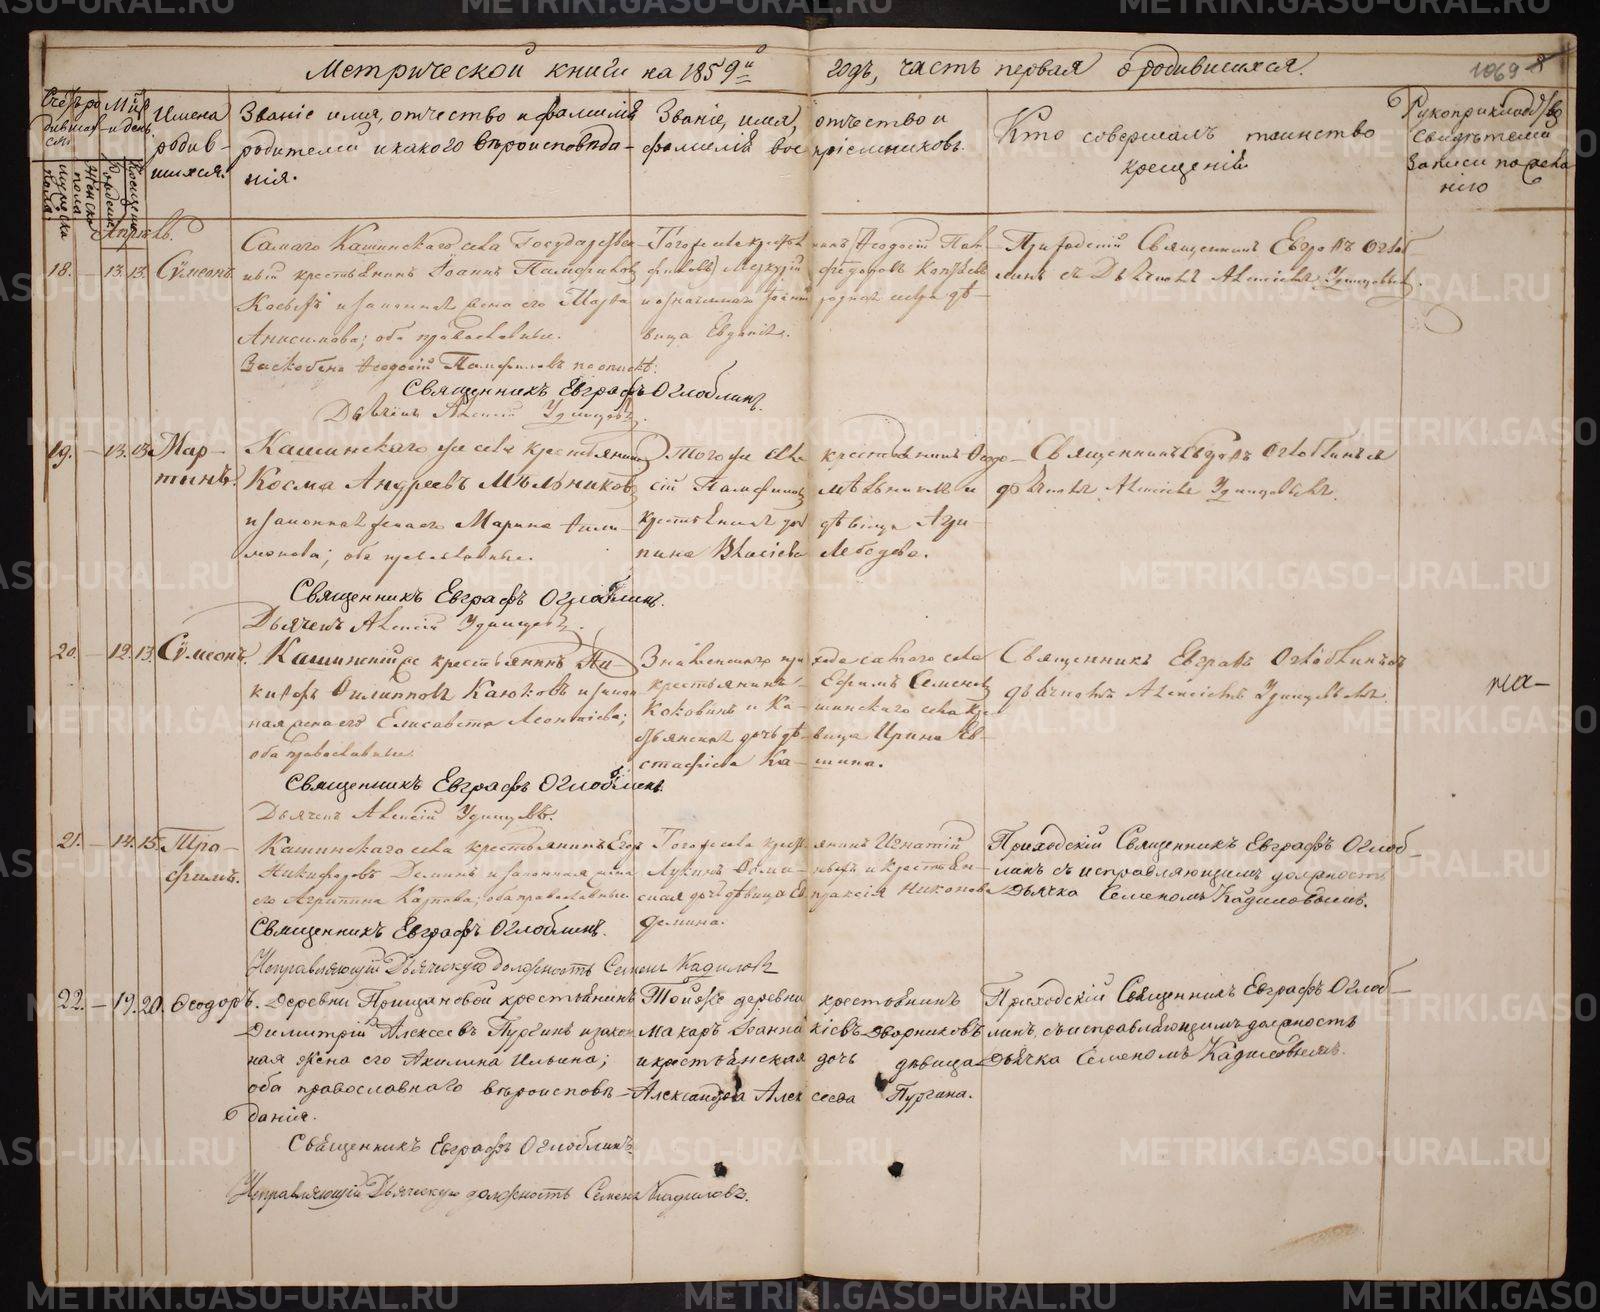 Метрической книги на 1859й годъ, часть первая о родившихся.
1069
8
Счетъ родившихся
Мѣс. и день
Имена родив-
шихся.
Званіе имя, отчество и фамилія
родителей и какого вѣроисповѣда-
нія.
Званіе, имя, отчество и
фамилія воспріемниковъ.
Кто совершалъ таинство
крещенія
Рукоприкладство
свидѣтелей
записи по жела
нію
мужеска пола
женска пола
рожденія
крещенія
Апрѣль.
18. – 13. 13. Сѵмеонъ.
Самаго Кашинскаго села Государствен-
ный крестьянинъ Іоаннъ Памфиловъ
и законная жена его Марѳа
Анисимова; оба православные.
Ѳеодосій Памфиловъ
Священникъ Евграфъ Оглоблинъ.
Дьячекъ Алексій Удинцовъ.
Тогоже села
Меркурій
дѣ-
вица Евдокія.
Приходскій Священникъ Евграфъ Оглоб-
линъ съ Дьячкомъ Алексіемъ Удинцовымъ.
19. – 13. 13. Мар-
тинъ.
Кашинскаго же села крестьянинъ
Косма Андреевъ Мѣльниковъ
и законная жена его Марина Фили-
монова; оба православные.
Священникъ Евграфъ Оглоблинъ.
Дьячекъ Алексій Удинцовъ.
Того же села крестьянинъ Ѳеодо-
сій Памфиловъ Мѣльниковъ и
крестьянская дочь дѣвица Агри-
пина Власіева Лебедева.
Священникъ Евграфъ Оглоблинъ съ
дьячкомъ Алексіемъ Удинцовымъ.
20. – 12. 13. Сѵмеонъ.
Кашинскій же крестьянинъ Ни-
кифоръ Филипповъ Каюковъ и закон-
ная жена его Елисавета Леонтіева;
оба православные.
Священникъ Евграфъ Оглоблинъ.
Дьячекъ Алексій Удинцовъ.
Знаменскаго прихода самого села
крестьянинъ Ефимъ Семеновъ
Коковинъ и Ка-шинскаго села кре-
стьянская дочь дѣ-вица Ирина Ев-
стафіева Ка-шина.
Священникъ Евграфъ Оглоблинъ съ
дьячкомъ Алексіемъ Удинцовымъ.
21. – 14. 15. Тро-
фимъ.
Кашинскаго села крестьянинъ Егоръ
Никифоровъ Деминъ и законная жена
его Агрипина Карпова; оба православные.
Священникъ Евграфъ Оглоблинъ.
Исправляющій Дьяческую должность Семенъ Кадиловъ
Тогоже села крестьянинъ Игнатій
Лукинъ и крестьян-
ская дочь дѣвица Евпраксія Никонова
Демина.
Приходскій Священникъ Евграфъ Оглоб-
линъ съ исправляющимъ должность
Дьячка Семеномъ Кадиловымъ.
22. – 19. 20. Ѳеодоръ.
Деревни Прищановой крестьянинъ
Димитрій Алексеевъ Пургинъ и закон-
ная жена его Акилина Ильина;
оба православнаго вѣроисповѣ-
данія.
Священникъ Евграфъ Оглоблинъ
Исправляющій Дьяческую должность Семенъ Кадиловъ.
Тойже деревни крестьянинъ
Макаръ Іоанникіевъ Дворниковъ
и крестьянская дочь дѣвица
Александра Алексеева Пургина.
Приходскій Священникъ Евграфъ Оглоб-
линъ, съ исправляющимъ должность
Дьячка Семеномъ Кадиловымъ.
METRIKI.GASO-URAL.RU